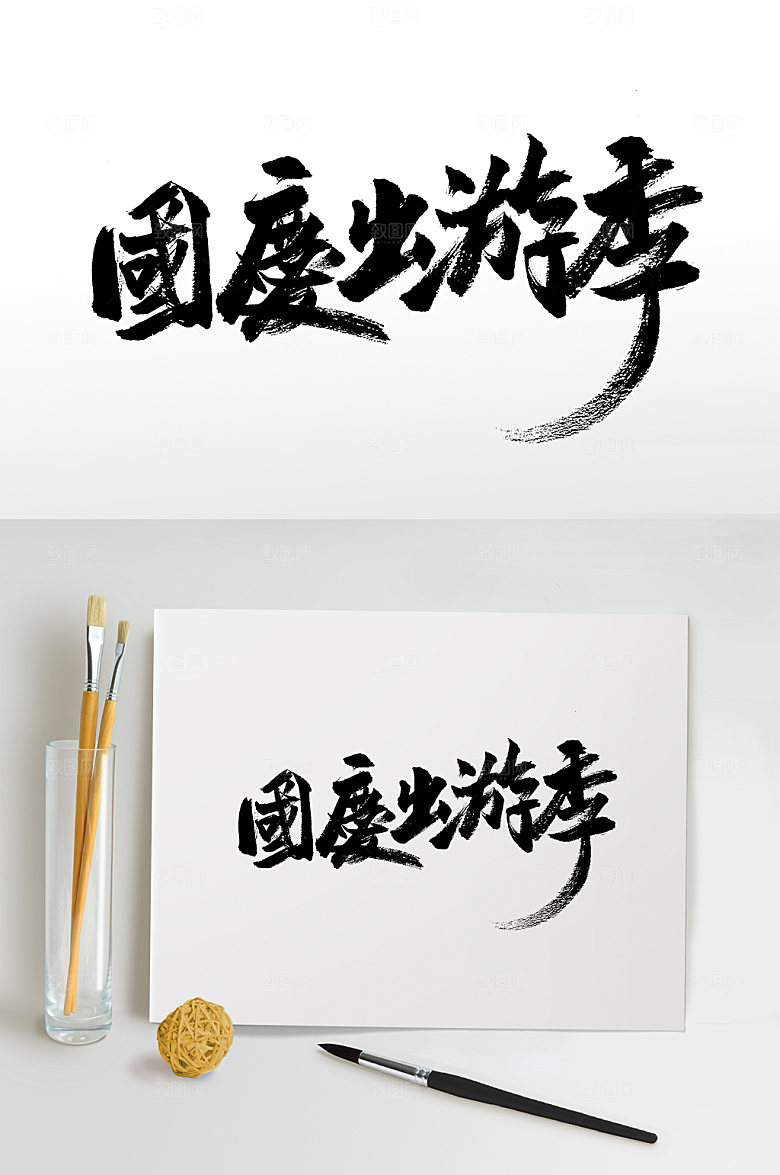 國慶出游季
國慶出游季